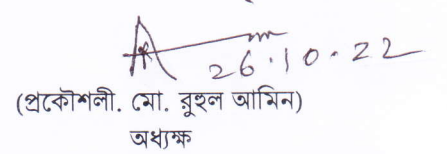 26.10.22
(প্রকৌশলী. মো. রুহুল আমিন)
অধ্যক্ষ